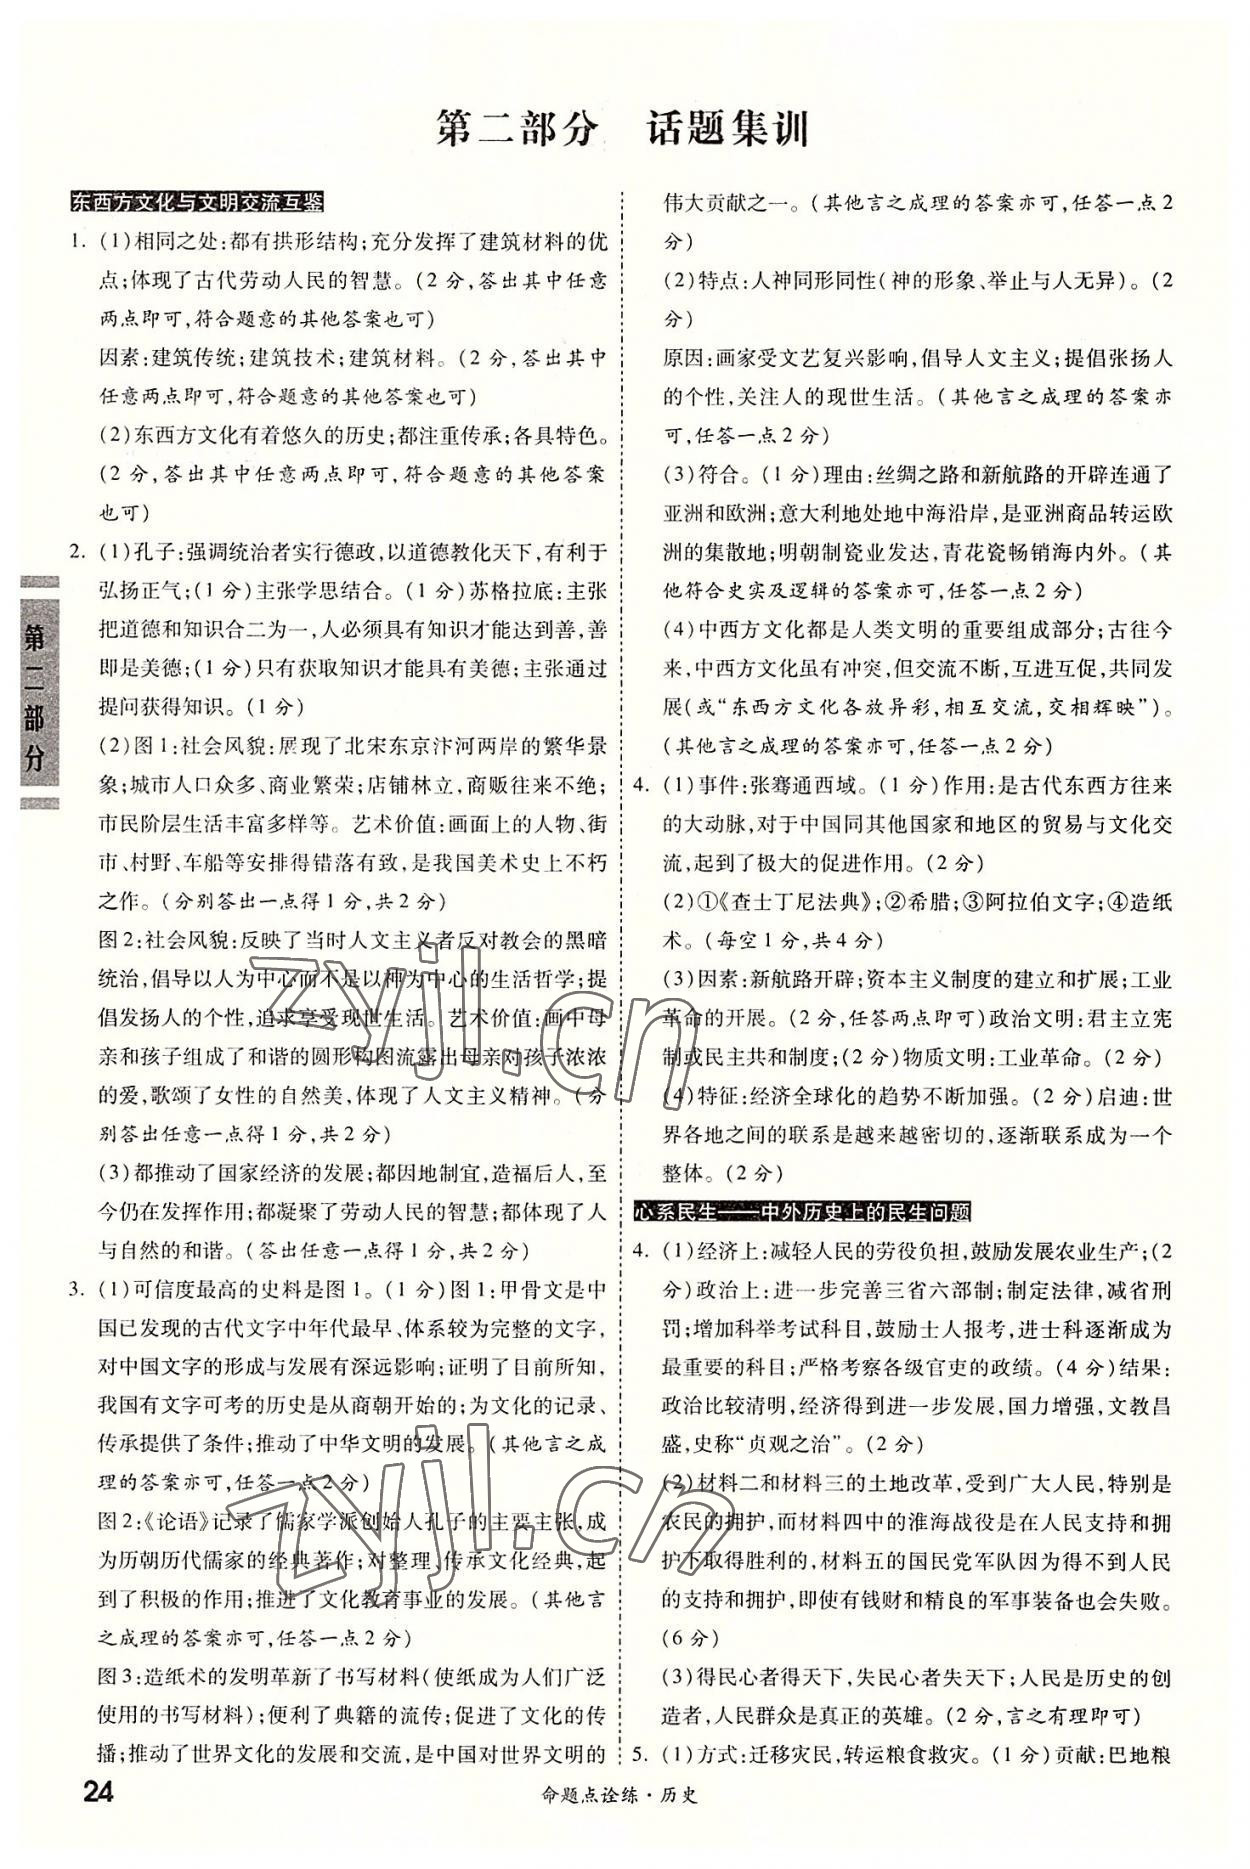 第二部分 话题集训
东西方文化与文明交流互鉴
1. (1)相同之处:都有拱形结构;充分发挥了建筑材料的优
点;体现了古代劳动人民的智慧。(2 分,答出其中任意
两点即可,符合题意的其他答案也可)
因素:建筑传统;建筑技术;建筑材料。(2 分,答出其中
任意两点即可,符合题意的其他答案也可)
(2)东西方文化有着悠久的历史;都注重传承;各具特色。
(2 分,答出其中任意两点即可,符合题意的其他答案
也可)
2. (1)孔子:强调统治者实行德政,以道德教化天下,有利于
弘扬正气;(1 分)主张学思结合。(1 分)苏格拉底:主张
把道德和知识合二为一,人必须具有知识才能达到善,善
即是美德;(1 分)只有获取知识才能具有美德;主张通过
提问获得知识。(1 分)
(2)图 1:社会风貌:展现了北宋东京汴河两岸的繁华景
象;城市人口众多、商业繁荣;店铺林立,商贩往来不绝;
市民阶层生活丰富多样等。艺术价值:画面上的人物、街
市、村野、车船等安排得错落有致,是我国美术史上不朽
之作。(分别答出一点得 1 分,共 2 分)
图 2:社会风貌:反映了当时人文主义者反对教会的黑暗
统治,倡导以人为中心而不是以神为中心的生活哲学;提
倡发扬人的个性,追求享受现世生活。艺术价值:画中母
亲和孩子组成了和谐的圆形构图流露出母亲对孩子浓浓
的爱,歌颂了女性的自然美,体现了人文主义精神。(分
别答出任意一点得 1 分,共 2 分)
(3)都推动了国家经济的发展;都因地制宜,造福后人,至
今仍在发挥作用;都凝聚了劳动人民的智慧;都体现了人
与自然的和谐。(答出任意一点得 1 分,共 2 分)
3. (1)可信度最高的史料是图 1。(1 分)图 1:甲骨文是中
国已发现的古代文字中年代最早、体系较为完整的文字,
对中国文字的形成与发展有深远影响;证明了目前所知,
我国有文字可考的历史是从商朝开始的;为文化的记录、
传承提供了条件;推动了中华文明的发展。(其他言之成
理的答案亦可,任答一点 2 分)
图 2:《论语》记录了儒家学派创始人孔子的主要主张,成
为历朝历代儒家的经典著作;对整理、传承文化经典,起
到了积极的作用;推进了文化教育事业的发展。(其他言
之成理的答案亦可,任答一点 2 分)
图 3:造纸术的发明革新了书写材料(使纸成为人们广泛
使用的书写材料);便利了典籍的流传;促进了文化的传
播;推动了世界文化的发展和交流,是中国对世界文明的
伟大贡献之一。(其他言之成理的答案亦可,任答一点 2
分)
(2)特点:人神同形同性(神的形象、举止与人无异)。(2
分)
原因:画家受文艺复兴影响,倡导人文主义;提倡张扬人
的个性,关注人的现世生活。(其他言之成理的答案亦
可,任答一点 2 分)
(3)符合。(1 分)理由:丝绸之路和新航路的开辟连通了
亚洲和欧洲;意大利地处地中海沿岸,是亚洲商品转运欧
洲的集散地;明朝制瓷业发达,青花瓷畅销海内外。(其
他符合史实及逻辑的答案亦可,任答一点 2 分)
(4)中西方文化都是人类文明的重要组成部分;古往今
来,中西方文化虽有冲突,但交流不断,互进互促,共同发
展(或“东西方文化各放异彩,相互交流,交相辉映”)。
(其他言之成理的答案亦可,任答一点 2 分)
4. (1)事件:张骞通西域。(1 分)作用:是古代东西方往来
的大动脉,对于中国同其他国家和地区的贸易与文化交
流,起到了极大的促进作用。(2 分)
(2)①《查士丁尼法典》;②希腊;③阿拉伯文字;④造纸
术。(每空 1 分,共 4 分)
(3)因素:新航路开辟;资本主义制度的建立和扩展;工业
革命的开展。(2 分,任答两点即可)政治文明:君主立宪
制或民主共和制度;(2 分)物质文明:工业革命。(2 分)
(4)特征:经济全球化的趋势不断加强。(2 分)启迪:世
界各地之间的联系是越来越密切的,逐渐联系成为一个
整体。(2 分)
心系民生——中外历史上的民生问题
4. (1)经济上:减轻人民的劳役负担,鼓励发展农业生产;(2
分)政治上:进一步完善三省六部制;制定法律,减省刑
罚;增加科举考试科目,鼓励士人报考,进士科逐渐成为
最重要的科目;严格考察各级官吏的政绩。(4 分)结果:
政治比较清明,经济得到进一步发展,国力增强,文教昌
盛,史称“贞观之治”。(2 分)
(2)材料二和材料三的土地改革,受到广大人民,特别是
农民的拥护,而材料四中的淮海战役是在人民支持和拥
护下取得胜利的,材料五的国民党军队因为得不到人民
的支持和拥护,即使有钱财和精良的军事装备也会失败。
(6 分)
(3)得民心者得天下,失民心者失天下;人民是历史的创
造者,人民群众是真正的英雄。(2 分,言之有理即可)
5. (1)方式:迁移灾民,转运粮食救灾。(1 分)贡献:巴地粮
第二部分
24
命题点诠练·历史
zyjl.cn
zyjl.cn